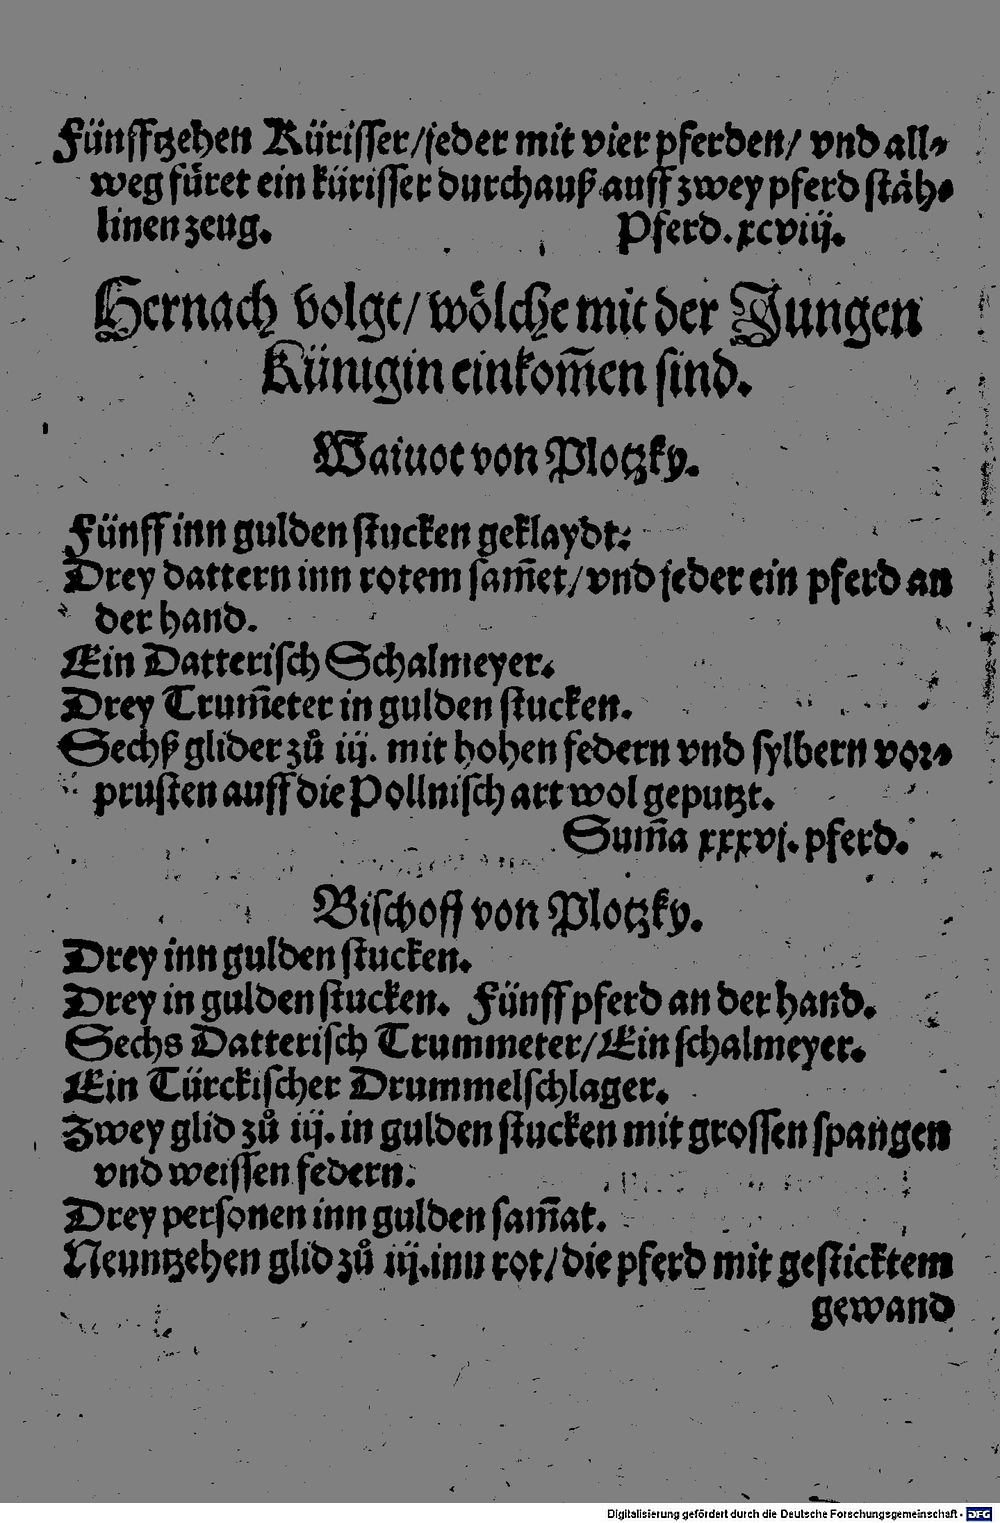 Fünfftzehen Kürisser/jeder mit vier pferden/ vnd all⸗
weg füret ein kürisser durchauß auff zwey pferd stäh⸗
linen zeug. Pferd. xcviij.
Hernach volgt/ wölche mit der Jungen
Künigin einkom̄en sind.
Waiuot von Plotzky.
Fünff inn gulden stucken geklaydt:
Drey dattern inn rotem sam̄et/vnd jeder ein pferd an
der hand.
Ein Datterisch Schalmeyer.
Drey Trum̄eter in gulden stucken.
Sechß glider zů iij. mit hohen federn vnd sylbern vor⸗
prusten auff die Pollnisch art wol geputzt.
Sum̄a xxxvj. pferd.
Bischoff von Plotzky.
Drey inn gulden stucken.
Drey in gulden stucken. Fünff pferd an der hand.
Sechs Datterisch Trummeter/Ein schalmeyer.
Ein Türckischer Drummelschlager.
Zwey glid zů iij. in gulden stucken mit grossen spangen
vnd weissen federn.
Drey personen inn gulden sam̄at.
Neuntzehen glid zů iij. inn rot/die pferd mit gesticktem
gewand
Digitalisierung gefördert durch die Deutsche Forschungsgemeinschaft - DFG